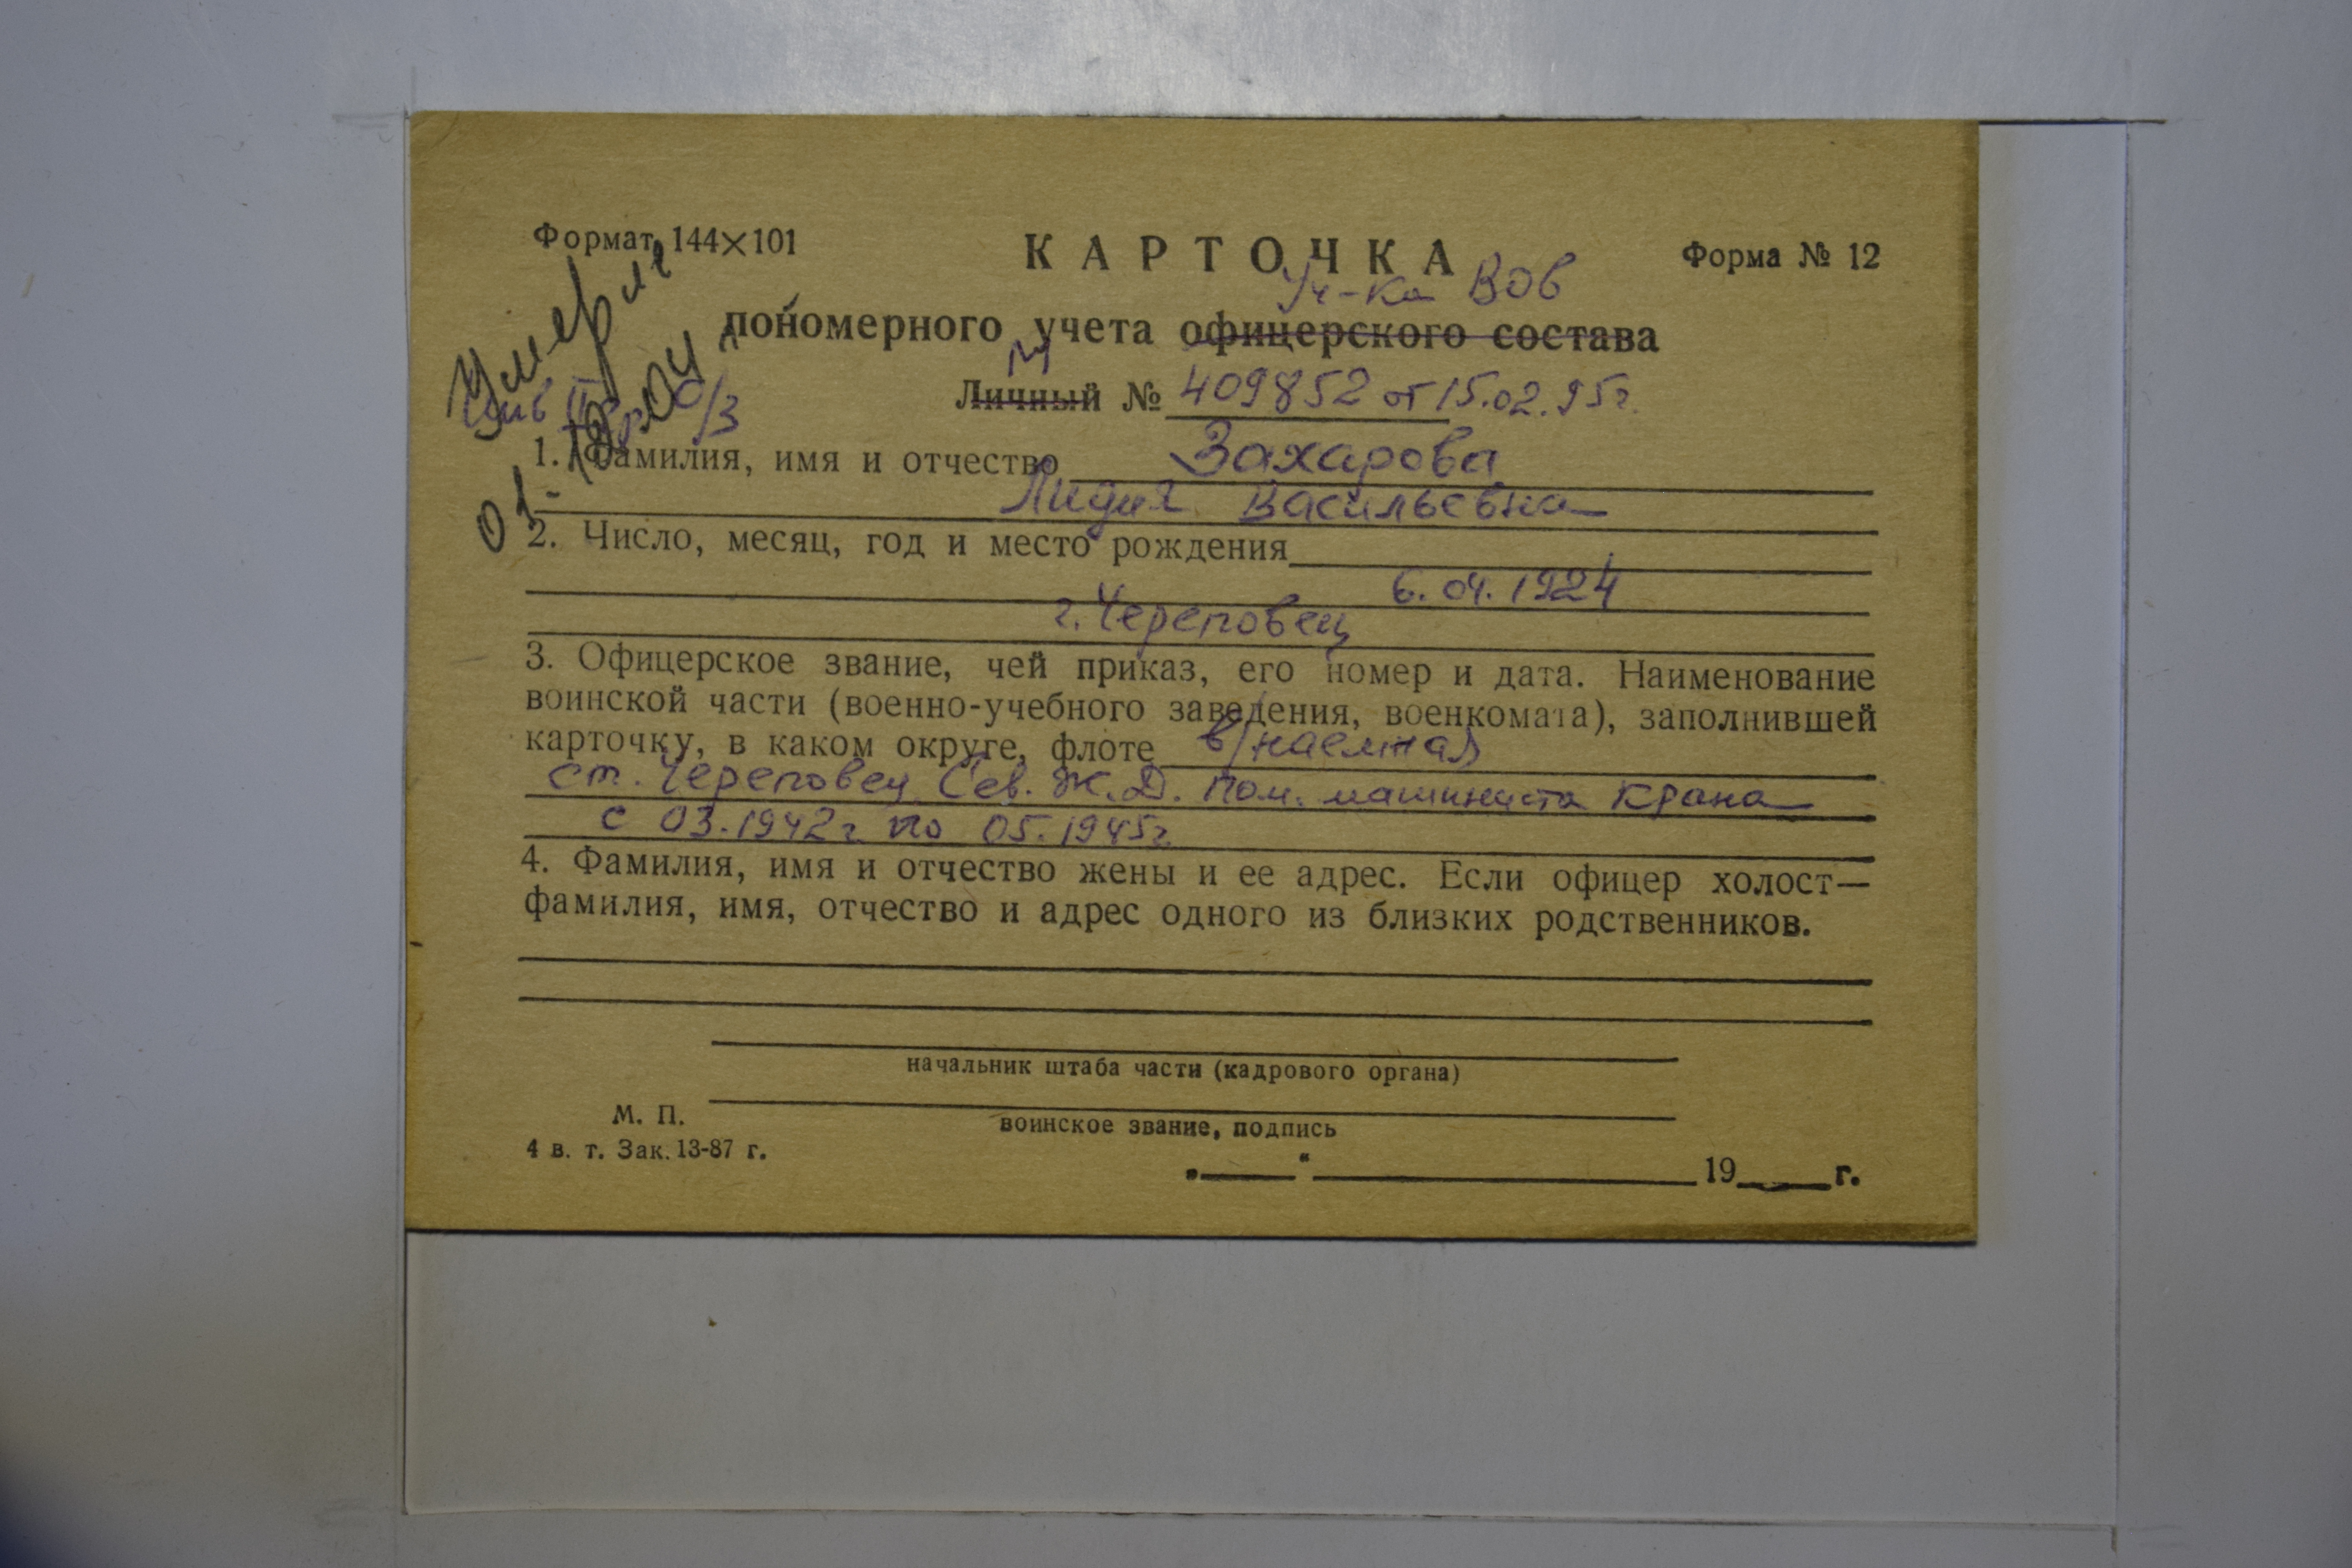 Формат 144×101
КАРТОЧКА
Форма № 12
Уч-ка ВОВ
пономерного учета офицерского состава
Личный № 409852 от 15.02.95г.
Умерла
Инв II гр. о/з
1. Фамилия, имя и отчество Захарова
Лидия Васильевна
2. Число, месяц, год и место рождения
6.04.1924
г. Череповец
3. Офицерское звание, чей приказ, его номер и дата. Наименование
воинской части (военно-учебного заведения, военкомата), заполнившей
карточку, в каком округе, флоте в/наемная
ст. Череповец Сев. Ж.Д. пом. машиниста крана
с 03.1942г по 05.1945г.
4. Фамилия, имя и отчество жены и ее адрес. Если офицер холост—
фамилия, имя, отчество и адрес одного из близких родственников.
начальник штаба части (кадрового органа)
М. П.
воинское звание, подпись
4 в. т. Зак. 13-87 г.
„ “ 19 г.